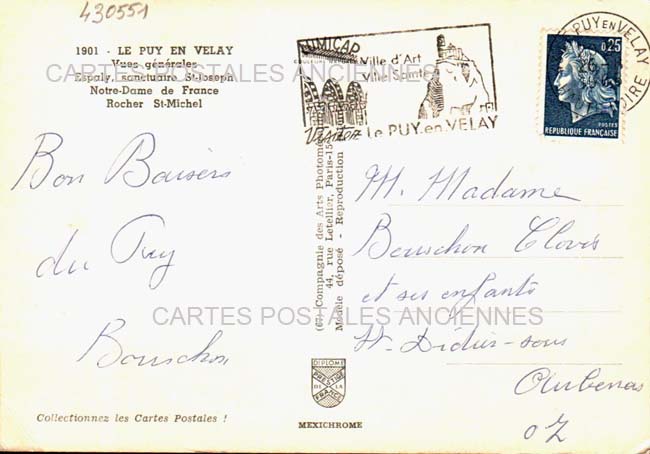 430551
1901 - LE PUY EN VELAY
Vues générales
Espaly, sanctuaire St-Joseph
Notre-Dame de France
Rocher St-Michel
CARTES POSTALES ANCIENNES
LUMICAP
Ville d'Art
Ville Sainte
Visitez Le PUY.en.VELAY
LE PUY EN VELAY
LOIRE
0,25
POSTES
REPUBLIQUE FRANÇAISE
Bon Baisers
du Puy
Bouschon
(67) Compagnie des Arts Photomé
44, rue Letellier, Paris-15
Modèle déposé - Reproduction
M. Madame
Bouschon Clovis
et ses enfants
St Didier-sous
Aubenas
07
CARTES POSTALES ANCIENNES
DIPLOME
PRESTIGE
DE LA
FRANCE
Collectionnez les Cartes Postales !
MEXICHROME